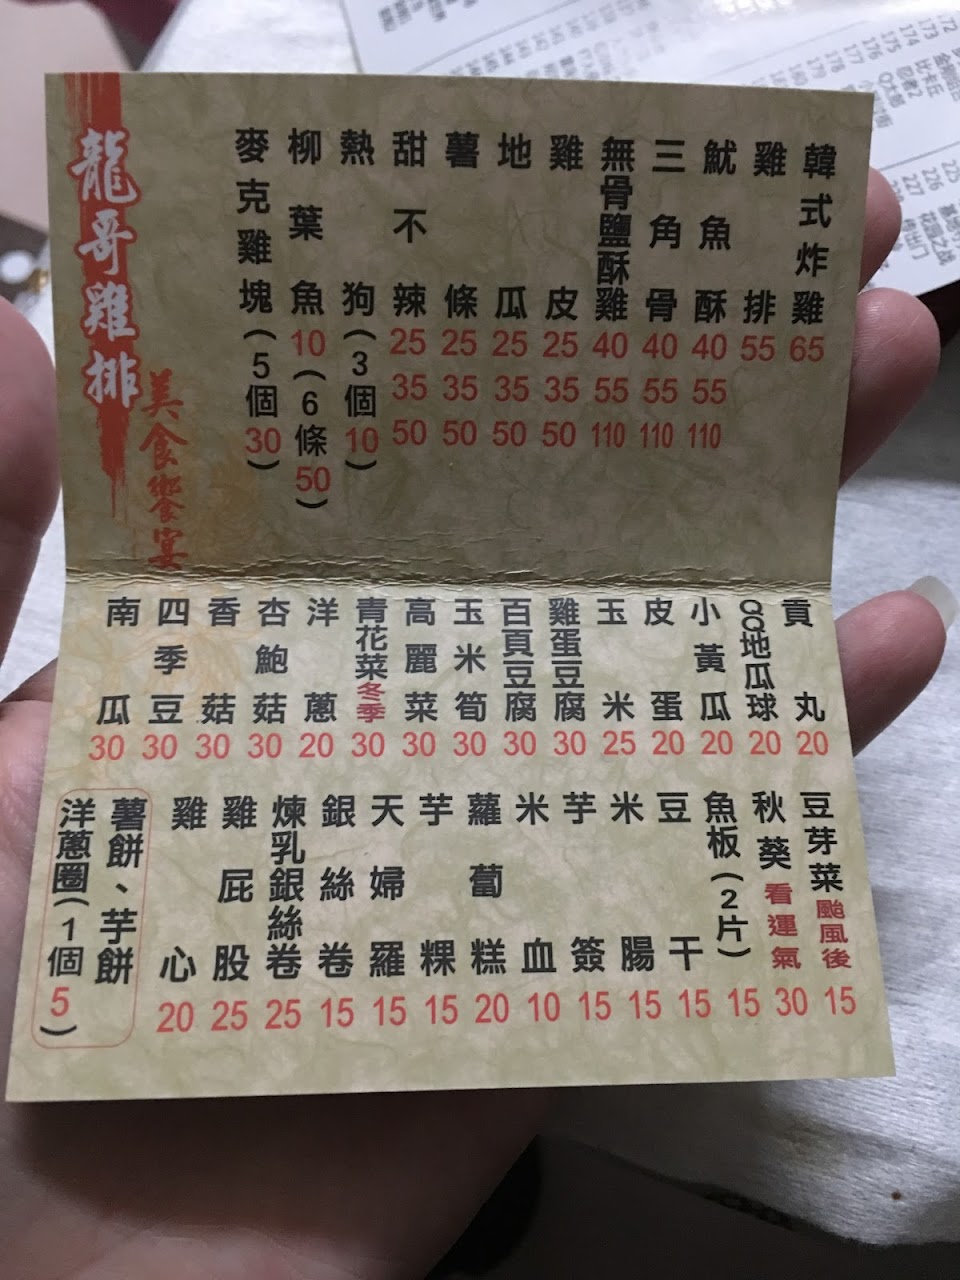 韓式炸雞 65
雞排 55
魷魚酥 40 55 110
三角骨 40 55 110
無骨鹽酥雞 40 55 110
雞皮 25 35 50
地瓜 25 35 50
薯條 25 35 50
甜不辣 25 35 50
熱狗(3個10)
柳葉魚10(6條50)
麥克雞塊(5個30)
龍哥雞排
美食饗宴
貢丸 20
QQ地瓜球 20
小黃瓜 20
皮蛋 20
玉米 25
雞蛋豆腐 30
百頁豆腐 30
玉米筍 30
高麗菜 30
青花菜冬季 30
洋蔥 20
杏鮑菇 30
香菇 30
四季豆 30
南瓜 30
豆芽菜颱風後 15
秋葵看運氣 30
魚板(2片) 15
豆干 15
米腸 15
芋簽 15
米血 10
蘿蔔糕 20
芋粿 15
天婦羅 15
銀絲卷 15
煉乳銀絲卷 25
雞屁股 25
雞心 20
薯餅、芋餅
洋蔥圈(1個5)
172
173
174
175
176
177
178
179
225
226
227